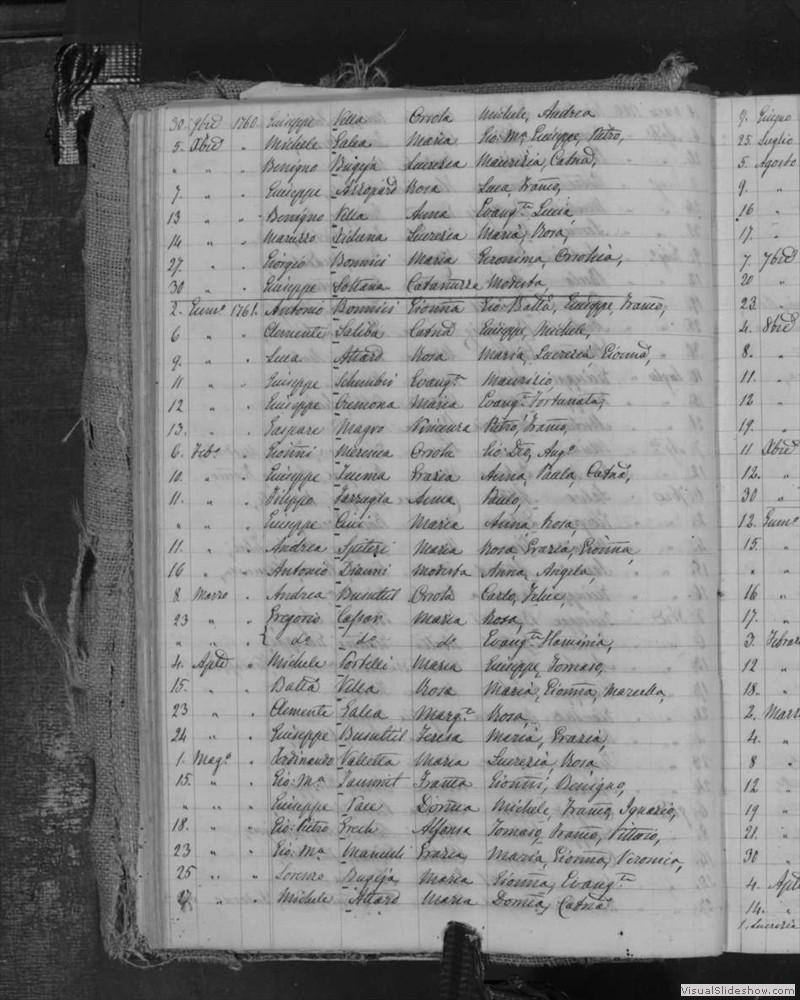 30 9bre 1760 Giuseppe Vella Orsola Michele, Andrea
5. Xbre " Michele Galea Maria Gio: Ma, Giuseppe, Pietro,
" " " Benigno Bugeja Lucrezia Maurizia, Catna,
7. " " Giuseppe Azzopard Rosa Luca, Franco,
13 " " Benigno Vella Anna Evangta, Lucia,
14 " " Marizzo Lucrezia Maria, Rosa,
27. " " Giorgio Bonnici Maria Geronima, Orsolica,
30 " " Giuseppe Soltana Catarinuzza Modesta,
2. Genno 1761. Antonio Bonnici Gionna Gio: Batta, Giuseppe, Franco,
6 " " Clemente Saliba Catna Giuseppe, Michele,
9. " " Luca Attard Rosa Maria, Lucrezia, Gionna,
11 " " Giuseppe Schembri Evangta Maurizio,
12 " " Giuseppe Cremona Maria Evangta Fortunata,
13. " " Gaspare Magro Vincenza Pietro, Franco,
6. Febo " Gionni Mercieca Orsola Gio: Dio, Augo
10. " " Giuseppe Grazia Anna, Paula, Catna,
11. " " Filippo Farrugia Anna Paulo,
" " " Giuseppe Maria Anna, Rosa
11. " " Andrea Spiteri Maria Rosa, Grazia, Gionna,
16 " " Antonio Modesta Anna, Angela,
8 Marzo " Andrea Busuttil Orsola Carlo, Felice,
23 " " Gregorio Caspar Maria Rosa,
" " " { do do do Evangta Flaminia,
4. Aple " Michele Portelli Maria Giuseppe, Tomaso,
15. " " Batta Vella Rosa Maria, Gionna, Marietta,
23 " " Clemente Galea Margta Rosa,
24 " " Giuseppe Busuttil Teresa Maria, Grazia,
1. Mago " Ferdinando Valletta Maria Lucrezia, Rosa,
15. " " Gio: Ma Franca Gionni, Benigno,
" " " Giuseppe Domca Michele, Franco, Ignazio,
18. " " Gio: Pietro Grech Alfonsa Tomaso, Franco, Vittorio,
23 " " Gio: Ma Grazia Maria, Gionna, Veronica,
25 " " Lorenzo Bugeja Maria Gionna, Evangta
" " Michele Attard Maria Domca, Catna
9. Giugno
25. Luglio
5. Agosto
9. "
16 "
17. "
7. 7bre
20 "
23 "
4. 8bre
8. "
11. "
12 "
19. "
11 Xbre
12. "
30 "
12. Genno
15. "
" "
16 "
17. "
3. Febrar
12 "
18. "
2. Marz
4. "
8 "
12 "
19 "
21. "
30 "
4. Aple
14. "
Lucrezia
VisualSlideshow.com